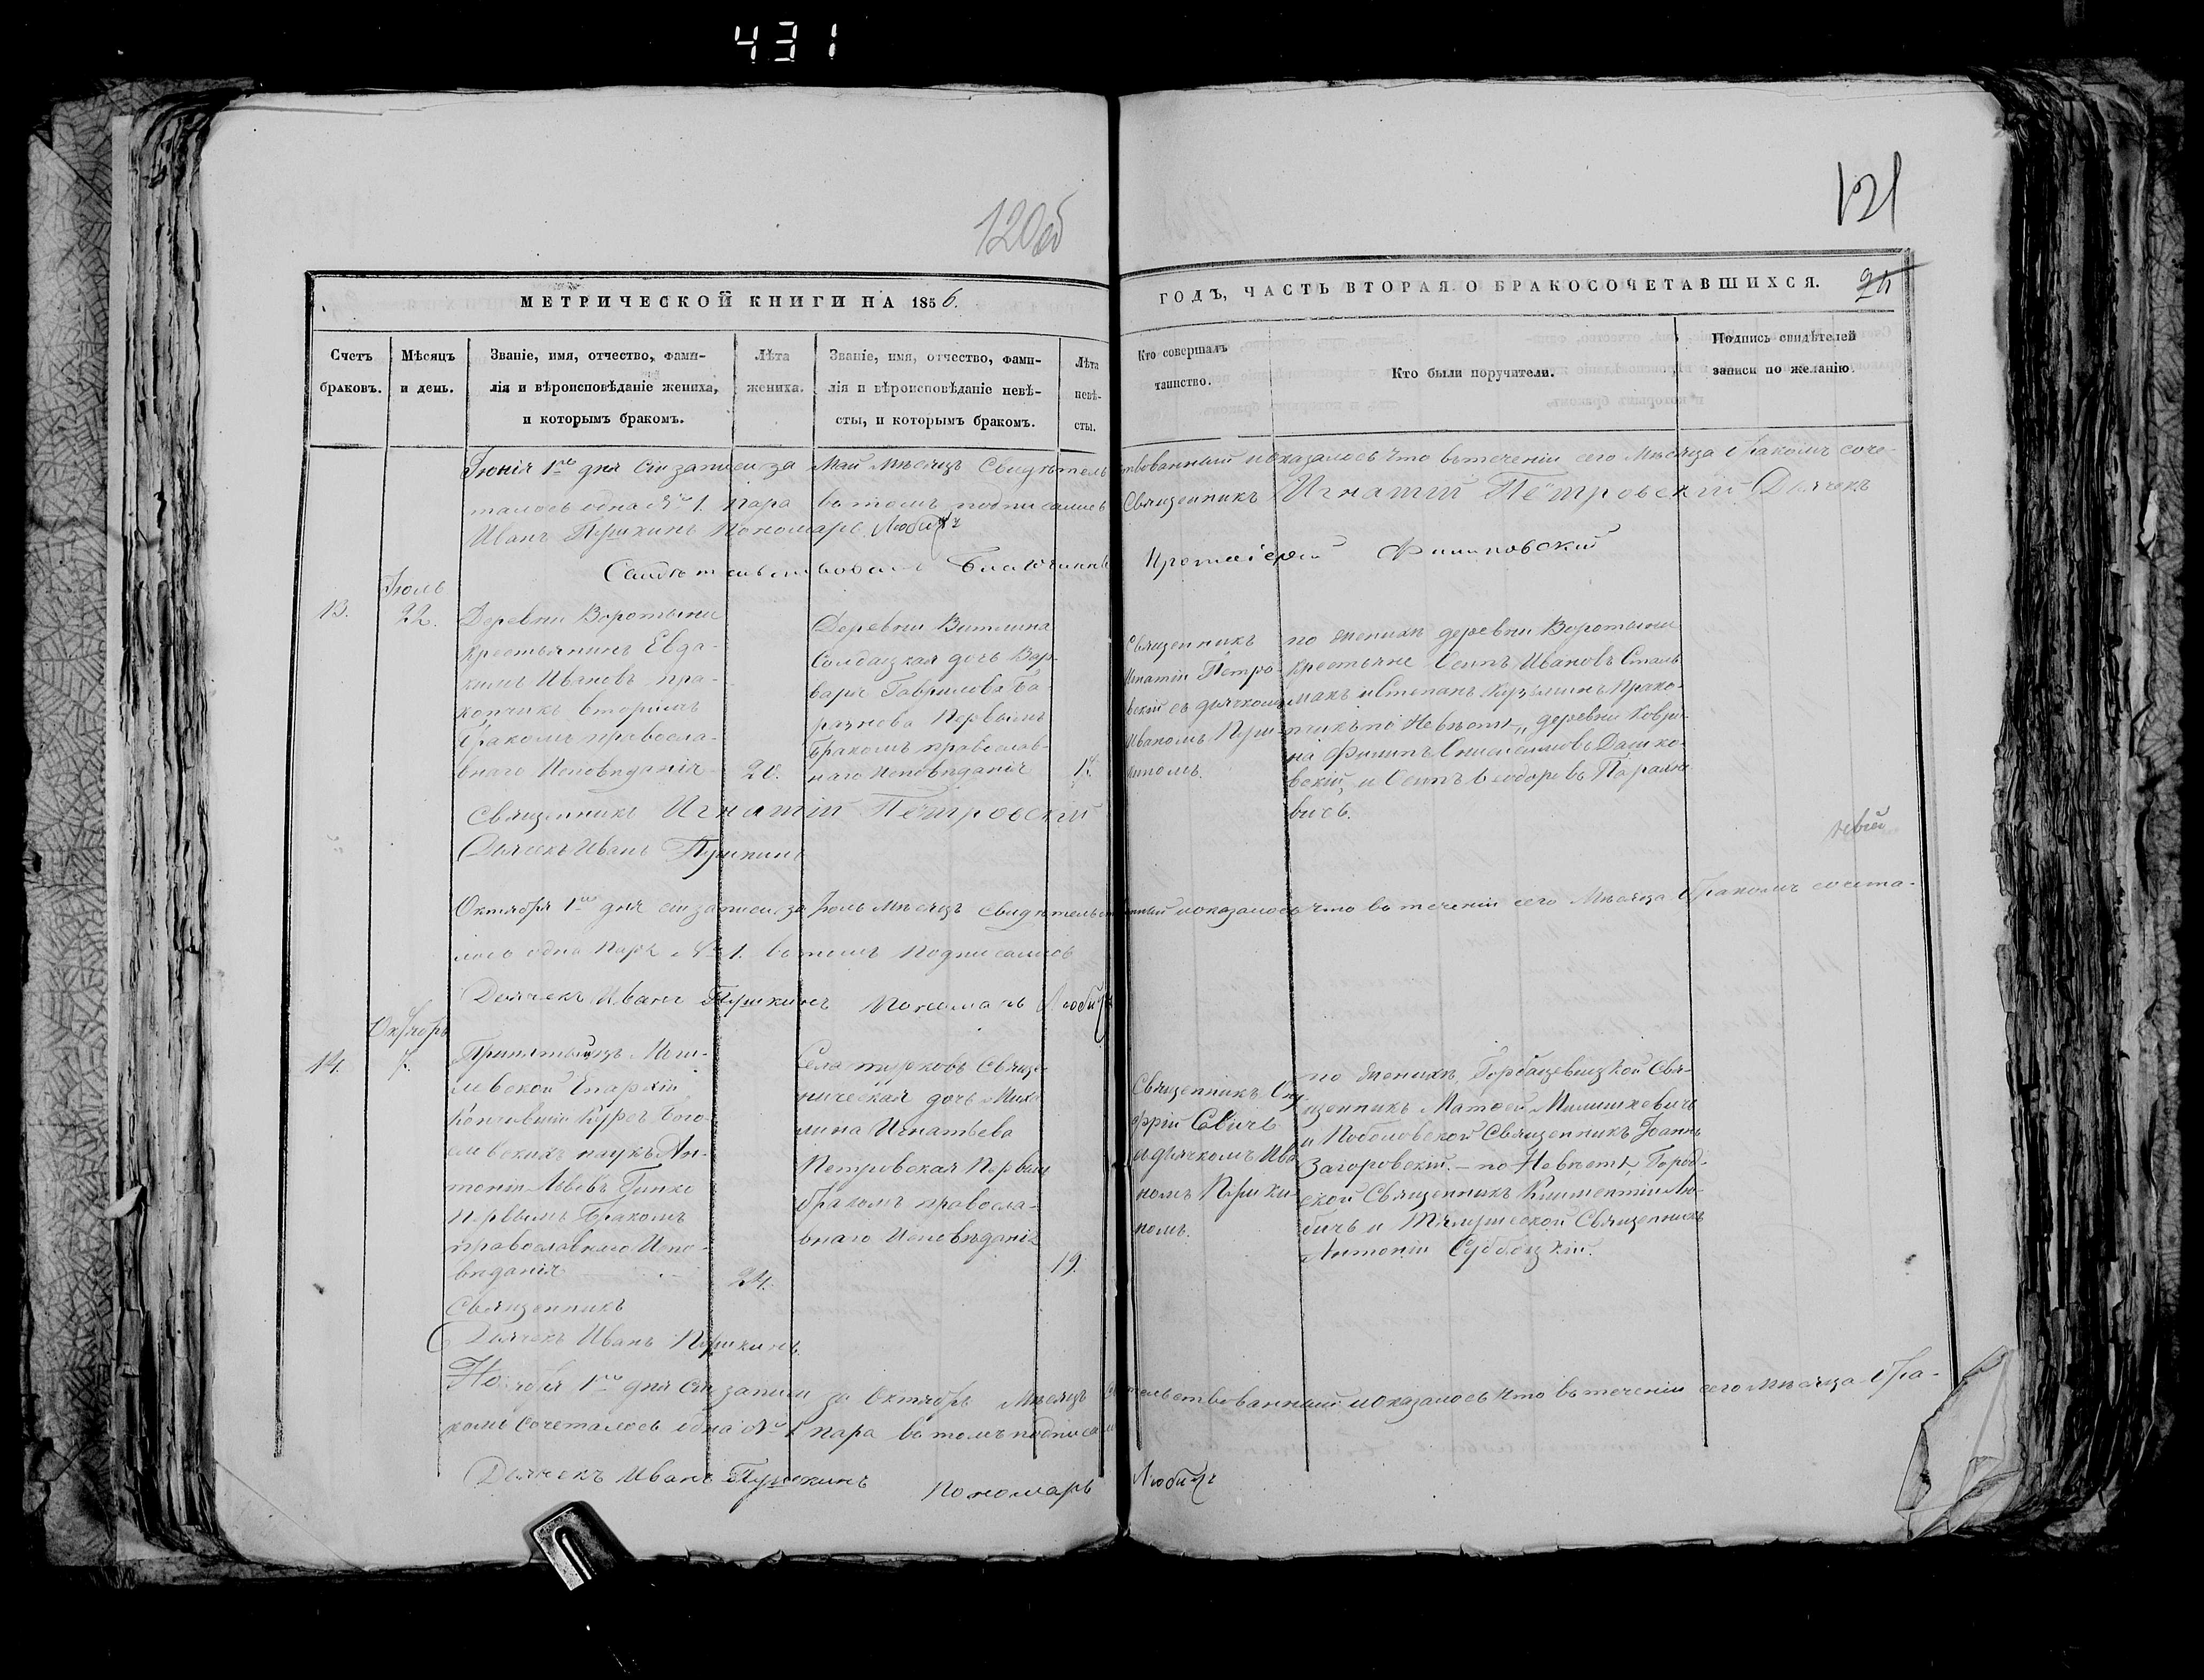 431
120об
121
МЕТРИЧЕСКОЙ КНИГИ НА 1856.
ГОДЪ, ЧАСТЬ ВТОРАЯ О БРАКОСОЧЕТАВШИХСЯ.
Счетъ браковъ.
Мѣсяцъ и день.
Званіе, имя, отчество, фами-
лія и вѣроисповѣданіе жениха,
и которымъ бракомъ.
Лѣта жениха.
Званіе, имя, отчество, фами-
лія и вѣроисповѣданіе невѣ-
сты, и которымъ бракомъ.
Лѣта невѣ-
сты.
Кто совершалъ
таинство.
Кто были поручители.
Подпись свидѣтелей
записи по желанію.
Іюнія 1го дня сіи записи за Май Мѣсяцъ Свидѣтель
ствованныи и оказалось что въ теченіи сего Мѣсяца бракомъ соче-
талось одна №1. пара въ томъ подписались
Священникъ Игнатій Петровскій Дьячекъ
Иванъ Пушкинъ Пономарь Любичъ
Свидѣтельствовалъ Благочинный
Протоіерей
13.
Іюль
22.
Деревни Воротыни
Крестьянинъ Евдо-
кимъ Ивановъ Пра-
копчикъ вторымъ
бракомъ правосла-
внаго Исповѣданія
Деревни
Солдацкая дочь Вар-
вара Гаврилова Ба-
рязнова Первымъ
бракомъ православ-
наго Исповѣданія
Священникъ
Игнатій Петро-
вскій съ дьячкомъ
Иваномъ Пуш-
киномъ.
по женихѣ деревни Воротыни
Крестьяне Осипъ Ивановъ Сталь
макъ и Степанъ Кузьминъ Прако-
пчикъ по Невѣстѣ, деревни
на Филипъ Дашко-
вскій, и Осипъ Ѳеодоровъ
вись.
Священникъ Игнатій Петровскій
Дьячекъ Иванъ Пушкинъ
Октября 1го дня сіи записи за Іюль Мѣсяцъ свидѣтельст
ванныи и оказалось что въ теченіи сего Мѣсяца бракомъ сочета-
лось одна пара №1. въ томъ подписались
Дьячекъ Иванъ Пушкинъ Пономарь Любичъ
14.
Октябрь
7.
Моги-
левской Епархіи
Кончившій Курсъ Бого-
словскихъ наукъ Ан-
тоній Львовъ Гинко
Первымъ бракомъ
православнаго Испо-
вѣданія
24.
Села Турковъ Священ
ническая дочь Миха
лина Игнатьева
Петровская Первым
бракомъ правосла-
внаго Исповѣданія
19.
Священникъ Ону
фрій Савичъ
и дьячкомъ Ива
номъ Пушки-
номъ.
по женихѣ, Горбацевицкой Свя-
щенникъ Матѳей
и Поболовской Священникъ Іоаннъ
Загоровскій. – по Невѣстѣ, Город-
ской Священникъ Климентій Лю-
бичъ и Священникъ
Антоній Субботцкій.
Священникъ
Дьячекъ Иванъ Пушкинъ.
Ноября 1го дня сіи записи за Октябрь Мѣсяцъ сви
тельствованныи и оказалось что въ теченіи сего Мѣсяца бра-
комъ сочеталось одна №1 пара въ томъ подписали
Дьячекъ Иванъ Пушкинъ Пономарь Любичъ